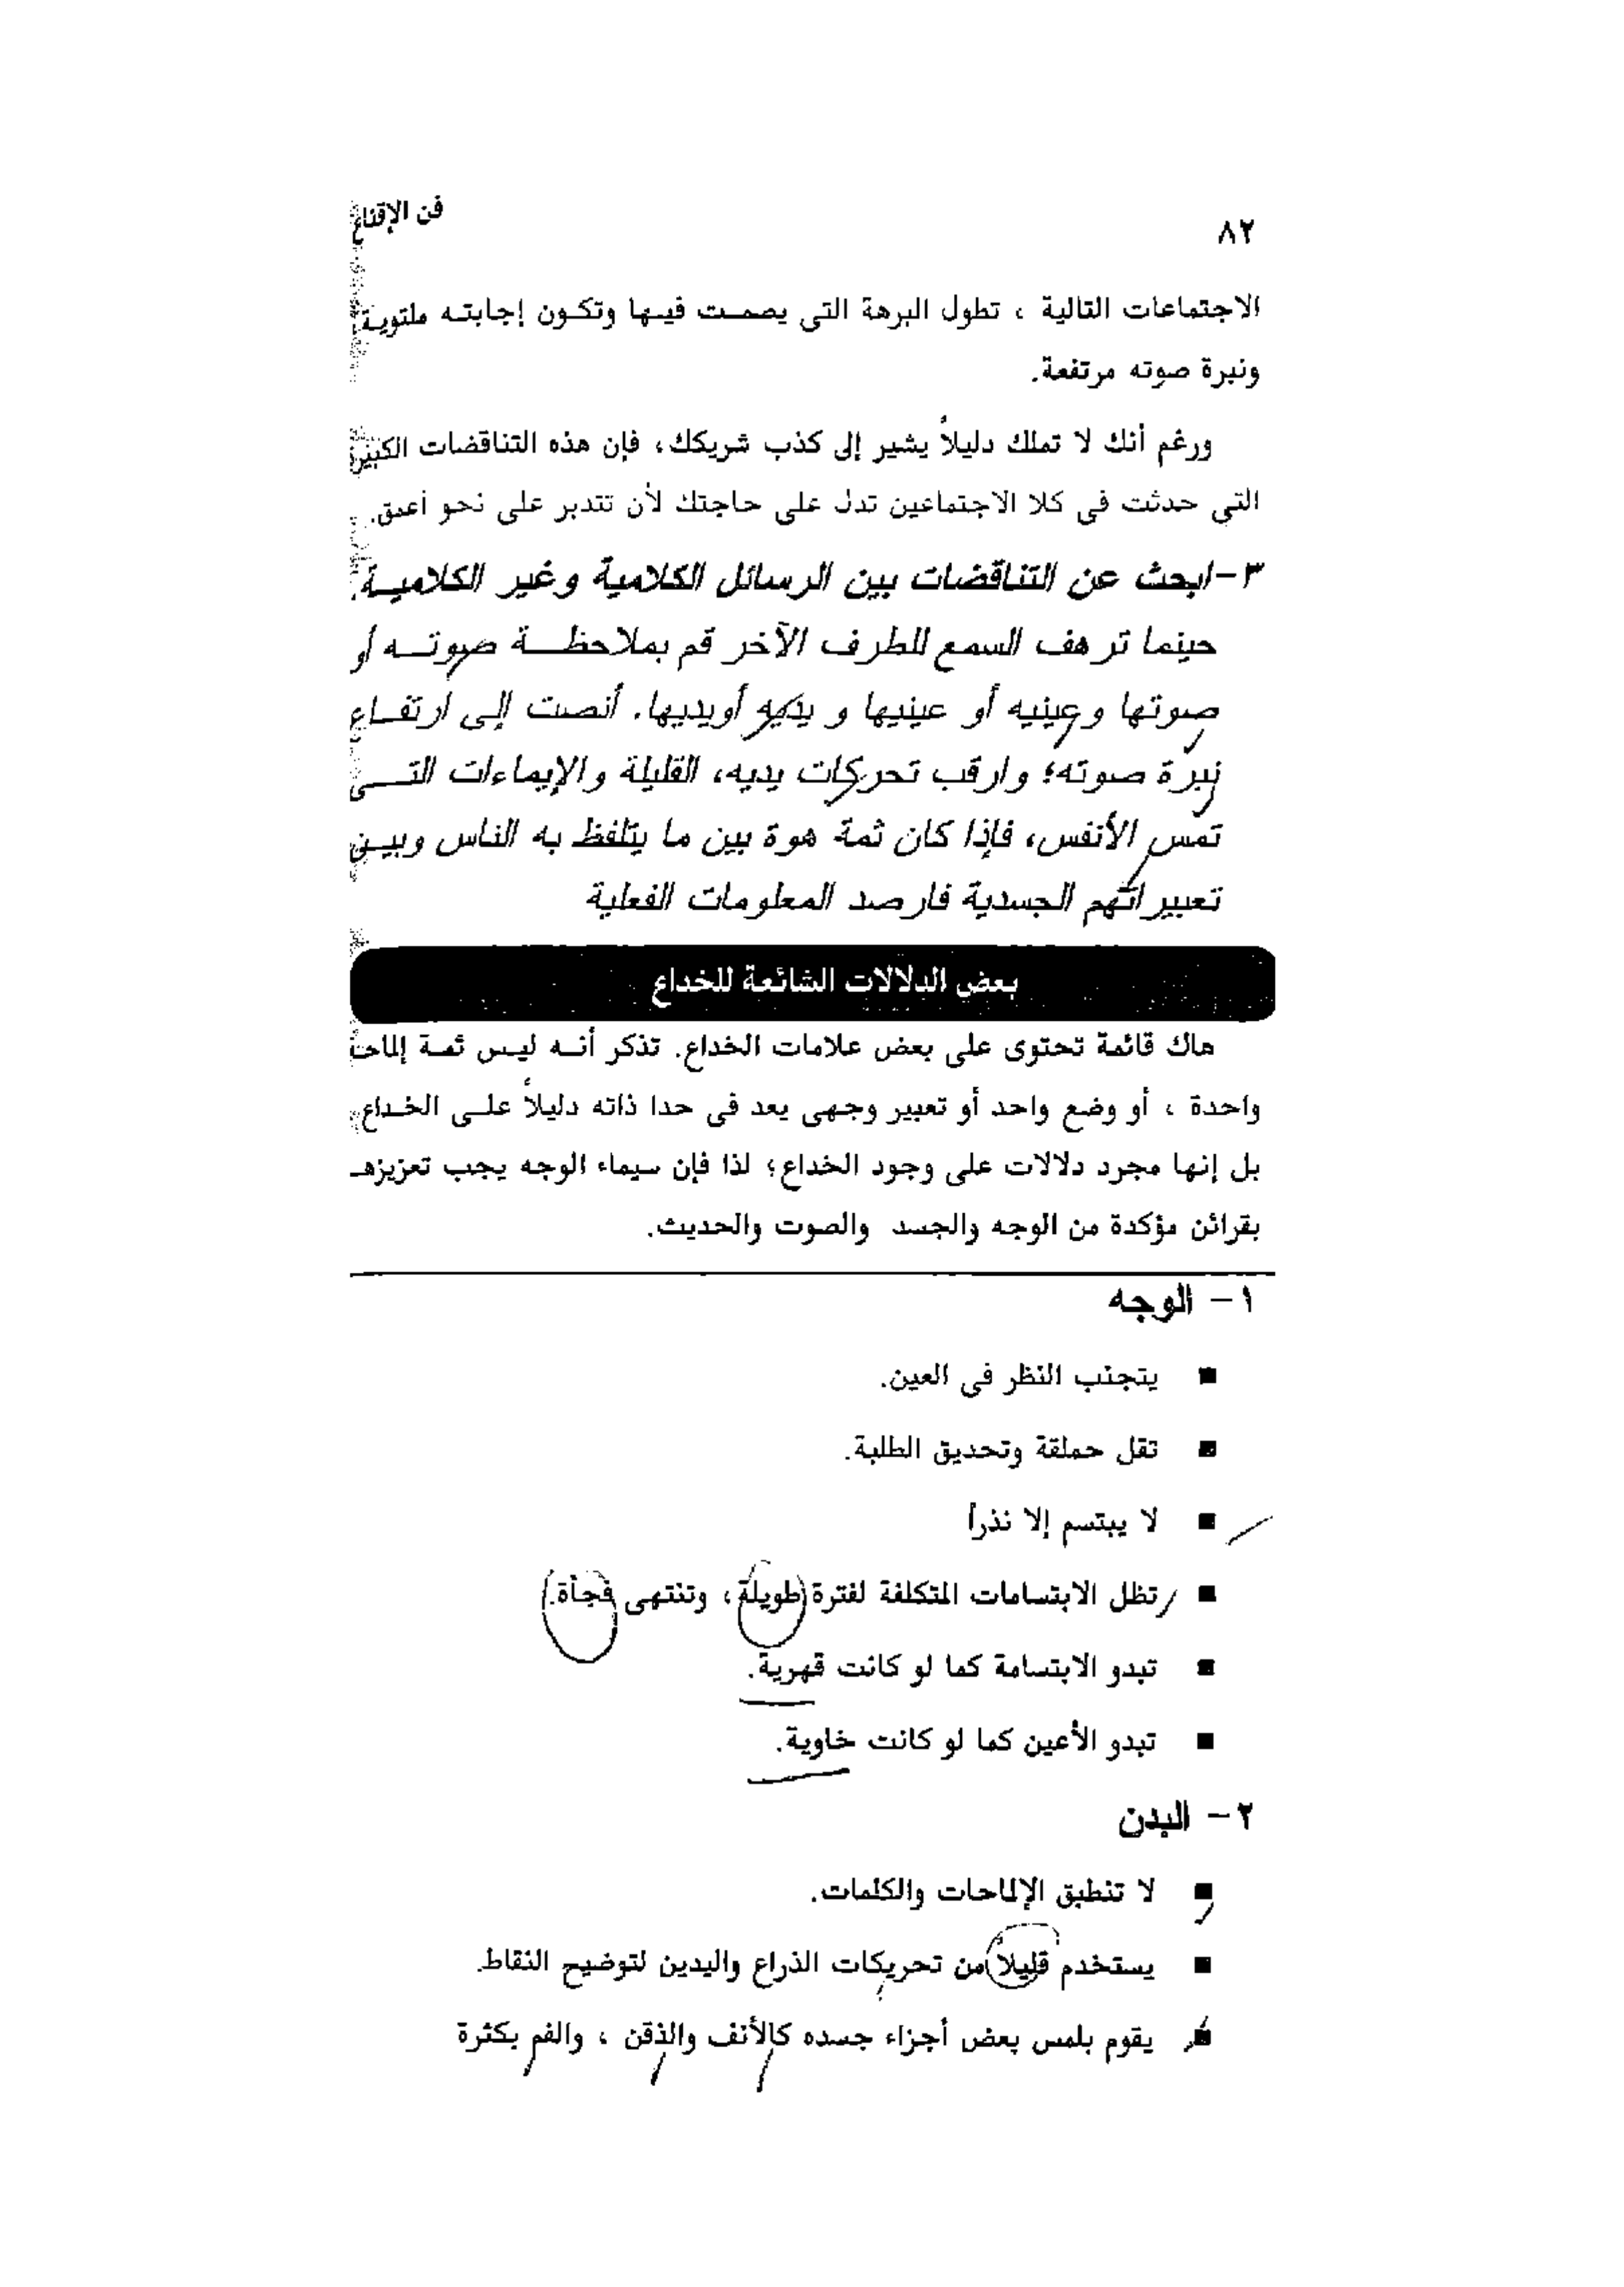 ٨٢
فن الإقناع
الاجتماعات التالية ، تطول البرهة التى يصمت فيها وتكون إجابته ملتوية
ونبرة صوته مرتفعة.
ورغم أنك لا تملك دليلاً يشير إلى كذب شريكك، فإن هذه التناقضات الكبير
التى حدثت فى كلا الاجتماعين تدل على حاجتك لأن تتدبر على نحو أعمق.
٣-ابحث عن التناقضات بين الرسائل الكلامية وغير الكلامية.
حينما ترهف السمع للطرف الآخر قم بملاحظة صوته أو
صوتها وعينيه أو عينيها و يديه أويديها. أنصت إلى ارتفاع
نبرة صوته؛ وارقب تحركات يديه، القليلة والإيماءات التى
تمس الأنفس، فإذا كان ثمة هوة بين ما يتلفظ به الناس وبين
تعبيراتهم الجسدية فارصد المعلومات الفعلية
بعض الدلالات الشائعة للخداع
هاك قائمة تحتوى على بعض علامات الخداع. تذكر أنه ليس ثمة إلماحة
واحدة ، أو وضع واحد أو تعبير وجهى يعد فى حدا ذاته دليلاً على الخداع
بل إنها مجرد دلالات على وجود الخداع؛ لذا فإن سيماء الوجه يجب تعزيزهـ
بقرائن مؤكدة من الوجه والجسد والصوت والحديث.
١- الوجه
■ يتجنب النظر فى العين.
■ تقل حملقة وتحديق الطلبة.
■ لا يبتسم إلا نذراً
■ تظل الابتسامات المتكلفة لفترة طويلة ، وتنتهى فجأة.
■ تبدو الابتسامة كما لو كانت قهرية.
■ تبدو الأعين كما لو كانت خاوية.
٢- البدن
■ لا تنطبق الإلماحات والكلمات.
■ يستخدم قليلاً من تحريكات الذراع واليدين لتوضيح النقاط.
■ يقوم بلمس بعض أجزاء جسده كالأنف والذقن ، والفم بكثرة